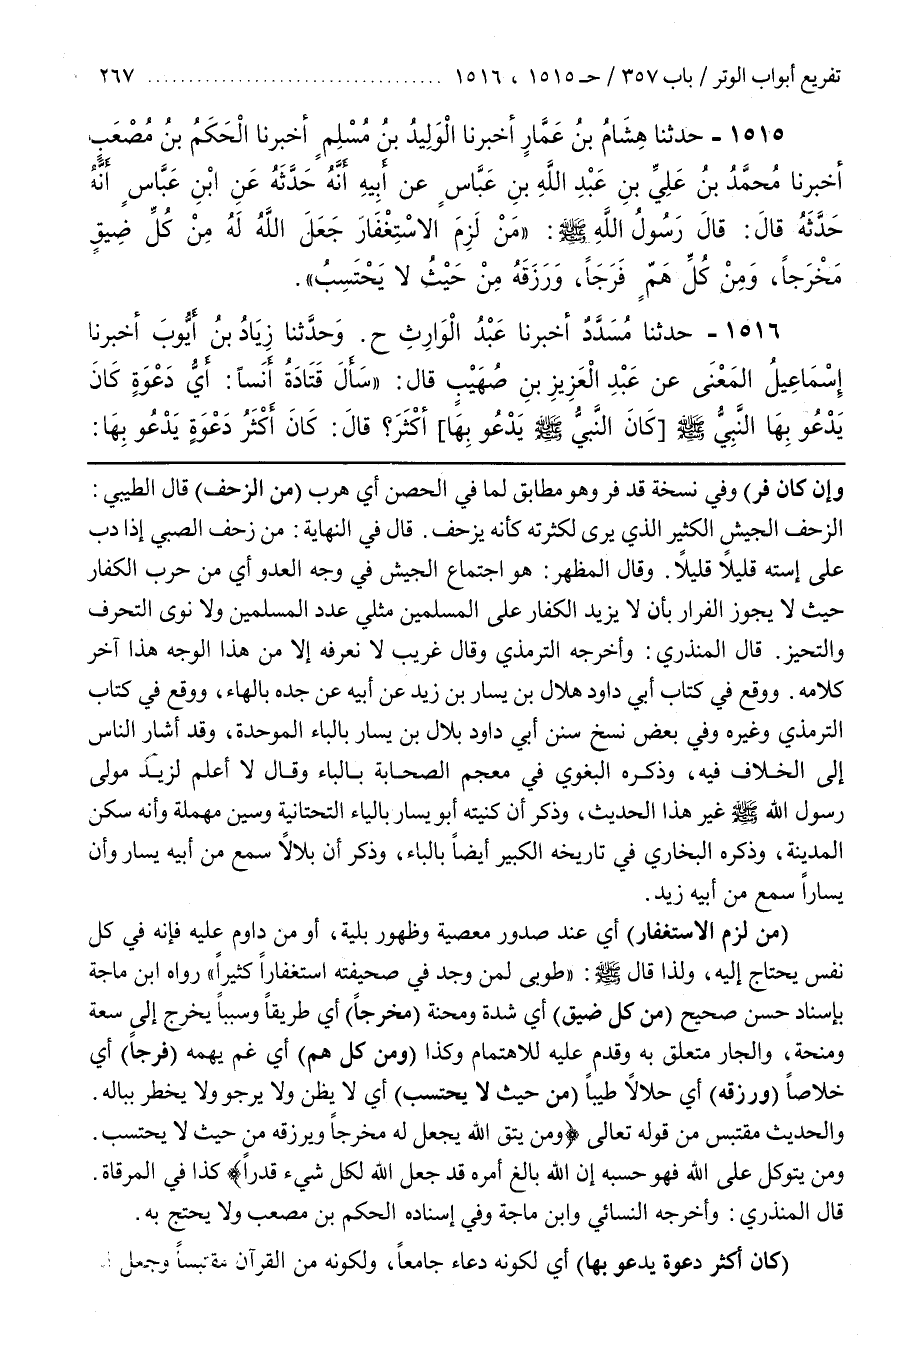 تفريع أبواب الوتر / باب ٣٥٧ / حـ ١٥١٥ ، ١٥١٦ .................................... ٢٦٧
١٥١٥ ـ حدثنا هِشَامُ بنُ عَمَّارٍ أخبرنا الْوَلِيدُ بنُ مُسْلِمٍ أخبرنا الْحَكَمُ بنُ مُصْعَبٍ
أخبرنا مُحمَّدُ بنُ عَلِيِّ بنِ عَبْدِ اللَّهِ بنِ عَبَّاسٍ عن أَبِيهِ أَنَّهُ حَدَّثَهُ عَنِ ابْنِ عَبَّاسٍ أَنَّهُ
حَدَّثَهُ قالَ: قالَ رَسُولُ اللَّهِ ﷺ: «مَنْ لَزِمَ الاسْتِغْفَارَ جَعَلَ اللَّهُ لَهُ مِنْ كُلِّ ضِيقٍ
مَخْرَجاً، وَمِنْ كُلِّ هَمٍّ فَرَجَاً، وَرَزَقَهُ مِنْ حَيْثُ لا يَحْتَسِبُ».
١٥١٦ - حدثنا مُسَدَّدٌ أخبرنا عَبْدُ الْوَارِثِ ح. وَحدَّثنا زِيَادُ بنُ أَيُّوبَ أخبرنا
إِسْمَاعِيلُ المَعْنَى عن عَبْدِ الْعَزِيزِ بنِ صُهَيْبٍ قال: «سَأَلَ قَتَادَةُ أَنَساً: أَيُّ دَعْوَةٍ كَانَ
يَدْعُو بِهَا النَّبِيُّ ﷺ [كَانَ النَّبِيُّ ﷺ يَدْعُو بِهَا] أَكْثَرَ؟ قالَ: كَانَ أَكْثَرُ دَعْوَةٍ يَدْعُو بِهَا:
وإن كان فر) وفي نسخة قد فر وهو مطابق لما في الحصن أي هرب (من الزحف) قال الطيبي:
الزحف الجيش الكثير الذي يرى لكثرته كأنه يزحف. قال في النهاية: من زحف الصبي إذا دب
على إسته قليلاً قليلاً. وقال المظهر: هو اجتماع الجيش في وجه العدو أي من حرب الكفار
حيث لا يجوز الفرار بأن لا يزيد الكفار على المسلمين مثلي عدد المسلمين ولا نوى التحرف
والتحيز. قال المنذري: وأخرجه الترمذي وقال غريب لا نعرفه إلا من هذا الوجه هذا آخر
كلامه. ووقع في كتاب أبي داود هلال بن يسار بن زيد عن أبيه عن جده بالهاء، ووقع في كتاب
الترمذي وغيره وفي بعض نسخ سنن أبي داود بلال بن يسار بالباء الموحدة، وقد أشار الناس
إلى الخلاف فيه، وذكره البغوي في معجم الصحابة بالباء وقال لا أعلم لزيد مولى
رسول الله ﷺ غير هذا الحديث، وذكر أن كنيته أبو يسار بالياء التحتانية وسين مهملة وأنه سكن
المدينة، وذكره البخاري في تاريخه الكبير أيضاً بالباء، وذكر أن بلالاً سمع من أبيه يسار وأن
يساراً سمع من أبيه زيد.
(من لزم الاستغفار) أي عند صدور معصية وظهور بلية، أو من داوم عليه فإنه في كل
نفس يحتاج إليه، ولذا قال ﷺ: «طوبى لمن وجد في صحيفته استغفاراً كثيراً» رواه ابن ماجة
بإسناد حسن صحيح (من كل ضيق) أي شدة ومحنة (مخرجاً) أي طريقاً وسبباً يخرج إلى سعة
ومنحة، والجار متعلق به وقدم عليه للاهتمام وكذا (ومن كل هم) أي غم يهمه (فرجاً) أي
خلاصاً (ورزقه) أي حلالاً طيباً (من حيث لا يحتسب) أي لا يظن ولا يرجو ولا يخطر بباله.
والحديث مقتبس من قوله تعالى ﴿ومن يتق الله يجعل له مخرجاً ويرزقه من حيث لا يحتسب.
ومن يتوكل على الله فهو حسبه إن الله بالغ أمره قد جعل الله لكل شيء قدراً﴾ كذا في المرقاة.
قال المنذري: وأخرجه النسائي وابن ماجة وفي إسناده الحكم بن مصعب ولا يحتج به.
(كان أكثر دعوة يدعو بها) أي لكونه دعاء جامعاً، ولكونه من القرآن مقتبساً وجعل